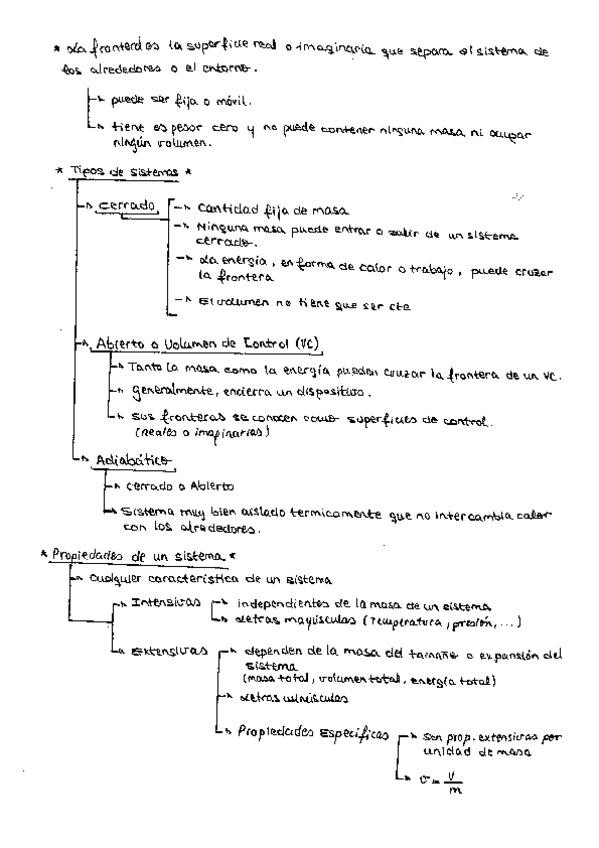 * La frontera es la superficie real o imaginaria que separa al sistema de
los alrededores o el entorno.
puede ser fija o móvil.
tiene espesor cero y no puede contener ninguna masa ni ocupar
ningún volumen.
* Tipos de sistemas *
Cerrado
Cantidad fija de masa
Ninguna masa puede entrar o salir de un sistema
cerrado.
La energía, en forma de calor o trabajo, puede cruzar
la frontera
El volumen no tiene que ser cte
Abierto o Volumen de Control (VC)
Tanto la masa como la energía pueden cruzar la frontera de un VC.
generalmente, encierra un dispositivo.
sus fronteras se conocen como superficies de control.
(reales o imaginarias)
Adiabático
Cerrado o Abierto
Sistema muy bien aislado termicamente que no intercambia calor
con los alrededores.
* Propiedades de un sistema *
Cualquier característica de un sistema
Intensivas
independientes de la masa de un sistema
Letras mayúsculas (Temperatura, presión, ...)
Extensivas
dependen de la masa del tamaño o expansión del
sistema
(masa total, volumen total, energía total)
Letras minúsculas
Propiedades Específicas
Son prop. extensivas por
unidad de masa
v = V/m